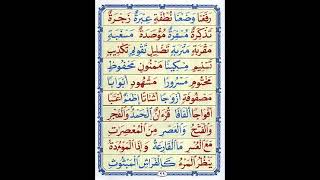 رَفْعًا وَضْعًا نُطْفَةٍ عِبْرَةٌ زَجْرَةٌ
تَذْكِرَةٌ مُسْفِرَةٌ مُؤْصَدَةٌ مَسْغَبَةٍ
مَقْرَبَةٍ مَتْرَبَةٍ تَضْلِيلٍ تَقْوِيمٍ تَكْذِيبٍ
تَسْنِيمٍ مِسْكِينًا مَمْنُونٍ مَحْفُوظٍ
مَخْتُومٍ مَسْرُورًا مَشْهُودٍ أَبْوَابًا
مَصْفُوفَةٌ أَزْوَاجًا أَشْتَاتًا
أَفْوَاجًا أَلْفَافًا قُرْءَانٌ ٱلْحَمْدُ وَٱلْفَجْرِ
وَٱلْفَتْحُ وَٱلْعَصْرِ مِنَ ٱلْمُعْصِرَٰتِ
مَعَ ٱلْعُسْرِ مَا ٱلْقَارِعَةُ وَإِذَا ٱلْمَوْءُدَةُ
يَنْظُرُ ٱلْمَرْءُ كَٱلْفَرَاشِ ٱلْمَبْثُوثِ